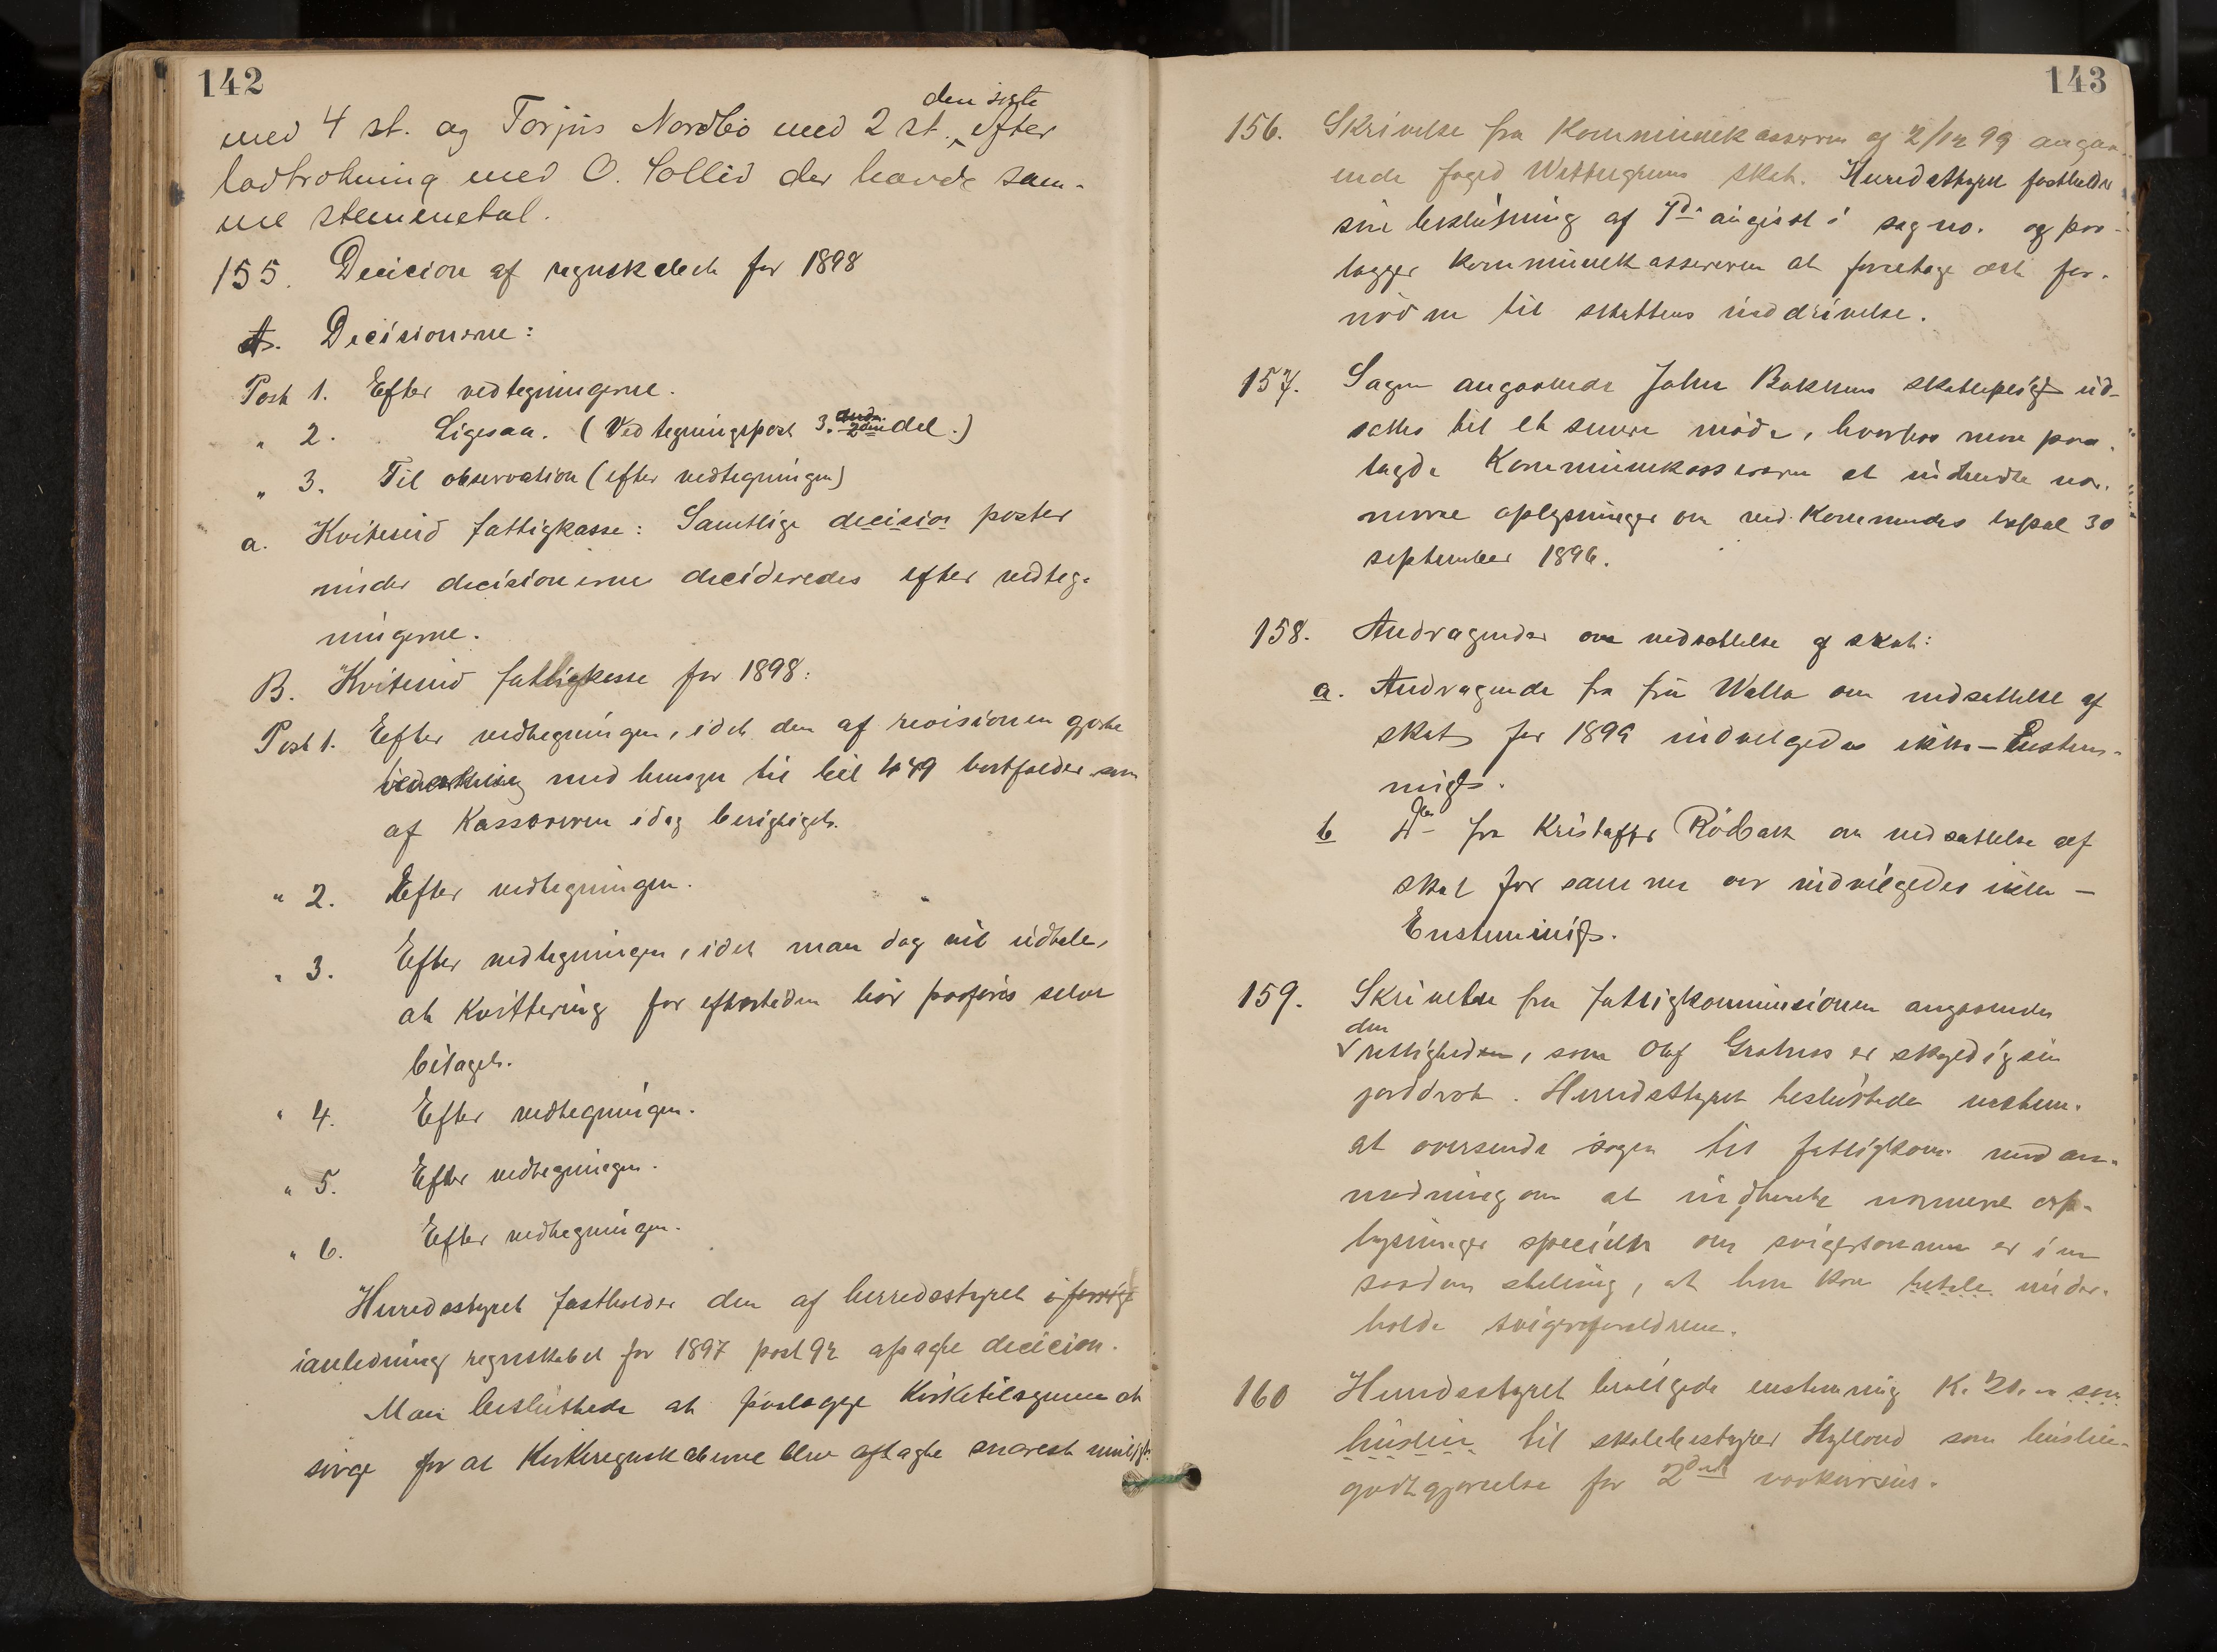 142
med 4 st. og Torjus Nordbö med 2 st. den siste efter
lodtrækning med O. Sollid der havde sam-
me stemmetal.
155. Decision af regnskabet for 1898
A. Decisionerne:
Post 1. Efter vedtegningerne.
" 2. Ligesaa. (Vedtegningspost 3. 2den del.)
" 3. Til observation (efter vedtegningen)
a. Kviteseid fattigkasse: Samtlige decision poster
under decisionerne decideredes efter vedteg-
ningerne.
B. Kviteseid fattigkasse for 1898:
Post 1. Efter vedtegningen, idet den af revisionen gjorte
bemerkning med hensyn til bil 449 bortfalder som
af Kassereren idag berigtiget.
" 2. Efter vedtegningen.
" 3. Efter vedtegningen, idet man dog vil udtale,
at Kvittering for eftertiden bör paaföres selve
bilaget.
" 4. Efter vedtegningen.
" 5. Efter vedtegningen.
" 6. Efter vedtegningen.
Herredsstyret fastholder den af herredsstyret i forrige
ianledning regnskabet for 1897 post 92 afsagte decision.
Man besluttede at paalægge Kirketilsynet at
sörge for at Kirkeregnskaberne blev aflagte snarest muligt.
143
156. Skrivelse fra Kommunekassereren af 2/12 99 angaa-
ende foged Wettergreens skat. Herredsstyret fastholder
sin beslutning af august i sag no. og paa-
lægger kommunekassereren at foretage det for-
nödne til skattens inddrivelse.
157. Sagen angaaende John Bakkens skattepligt ud-
sattes til et senere möde, hvorhos man paa-
lagde Kommunekassereren at indhente nær-
mere oplysninger om ved Kommendes 30
september 1896.
158. Andragender om nedsættelse af skat:
a. Andragende fra fru Walla om nedsættelse af
skat for 1899 indvilgedes ikke – Enstem-
migt.
b Do fra Kristoffer Rödbæk om nedsættelse af
skat for samme aar indvilgedes ikke –
Enstemmigt.
159. Skrivelse fra fattigkommissionen angaaende
den rettigheden, som Olaf er skyldig sin
jorddrot. Herredsstyret besluttede enstem.
at oversende sagen til fattigkom. med an-
modning om at indhente nærmere op-
lysninger specielt om svigersönnen er i en
saadan stilling, at han kan betale under-
holde svigerforeldrene.
160 Herredsstyret bevilgede enstemmig Kr. 20.00 som
husleie til skolebestyrer Hylland som husleie-
godtgjörelse for 2det vaarkursus.